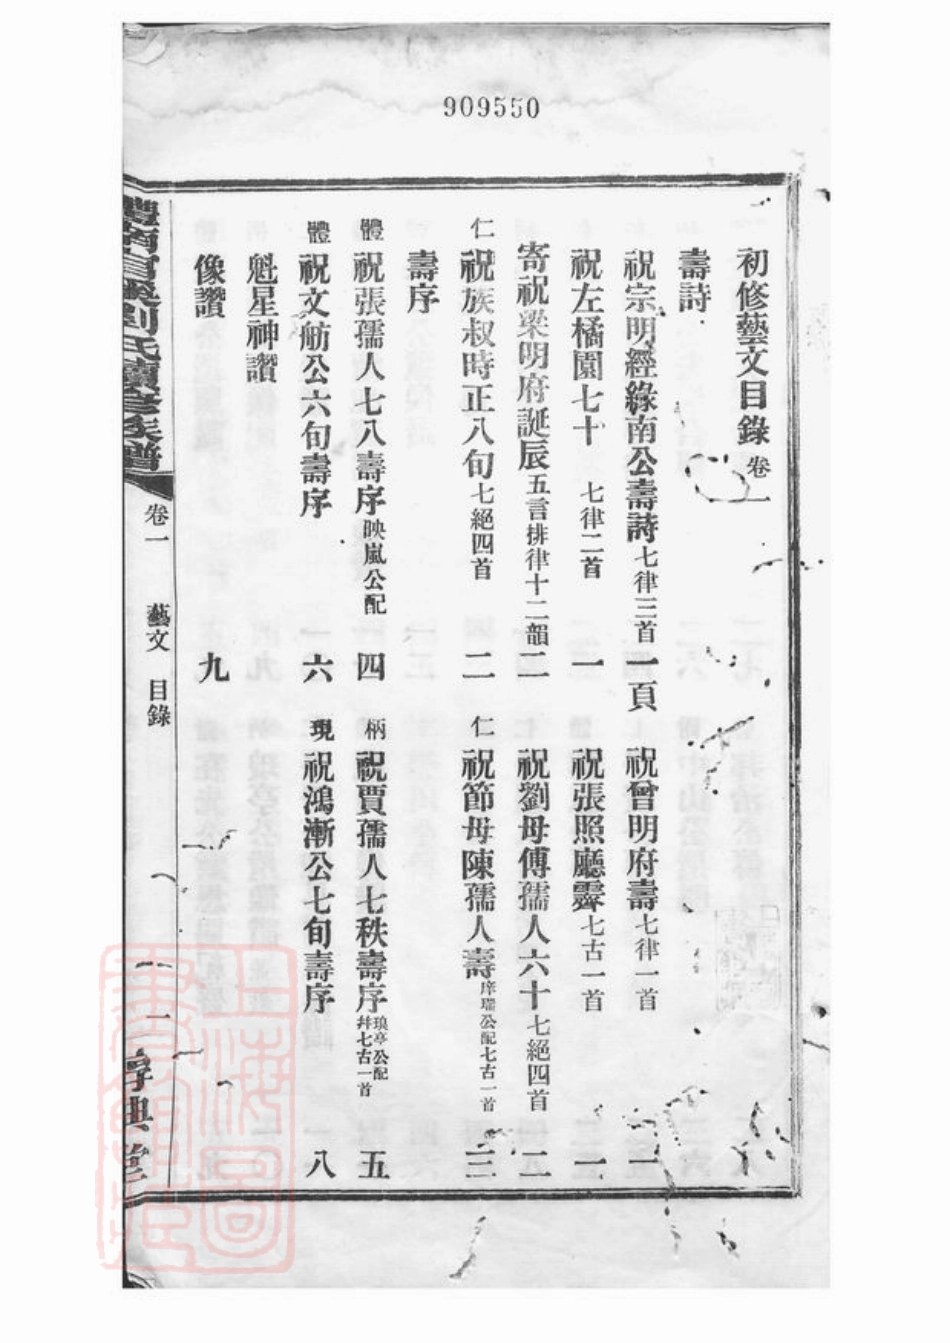 909550
初修藝文目錄 卷一
壽詩
祝宗明經緣南公壽詩 七律三首 一頁
祝曾明府壽 七律一首 一
祝左橘園七十 七律二首 一
祝張照廳霽 七古一首 一
寄祝梁明府誕辰 五言排律十二韻 二
祝劉母傅孺人六十 七絕四首 二
仁 祝族叔時正八旬 七絕四首 二
仁 祝節母陳孺人壽 瑞公配七古一首 三
壽序
體 祝張孺人七八壽序 映嵐公配 四
柄 祝賈孺人七秩壽序 琅亭公配 幷七古一首 五
體 祝文舫公六旬壽序 六
現 祝鴻漸公七旬壽序 八
魁星神讚
像讚 九
南官 劉氏續修族譜
卷一 藝文 目錄 一 惇典堂
上海圖書館藏